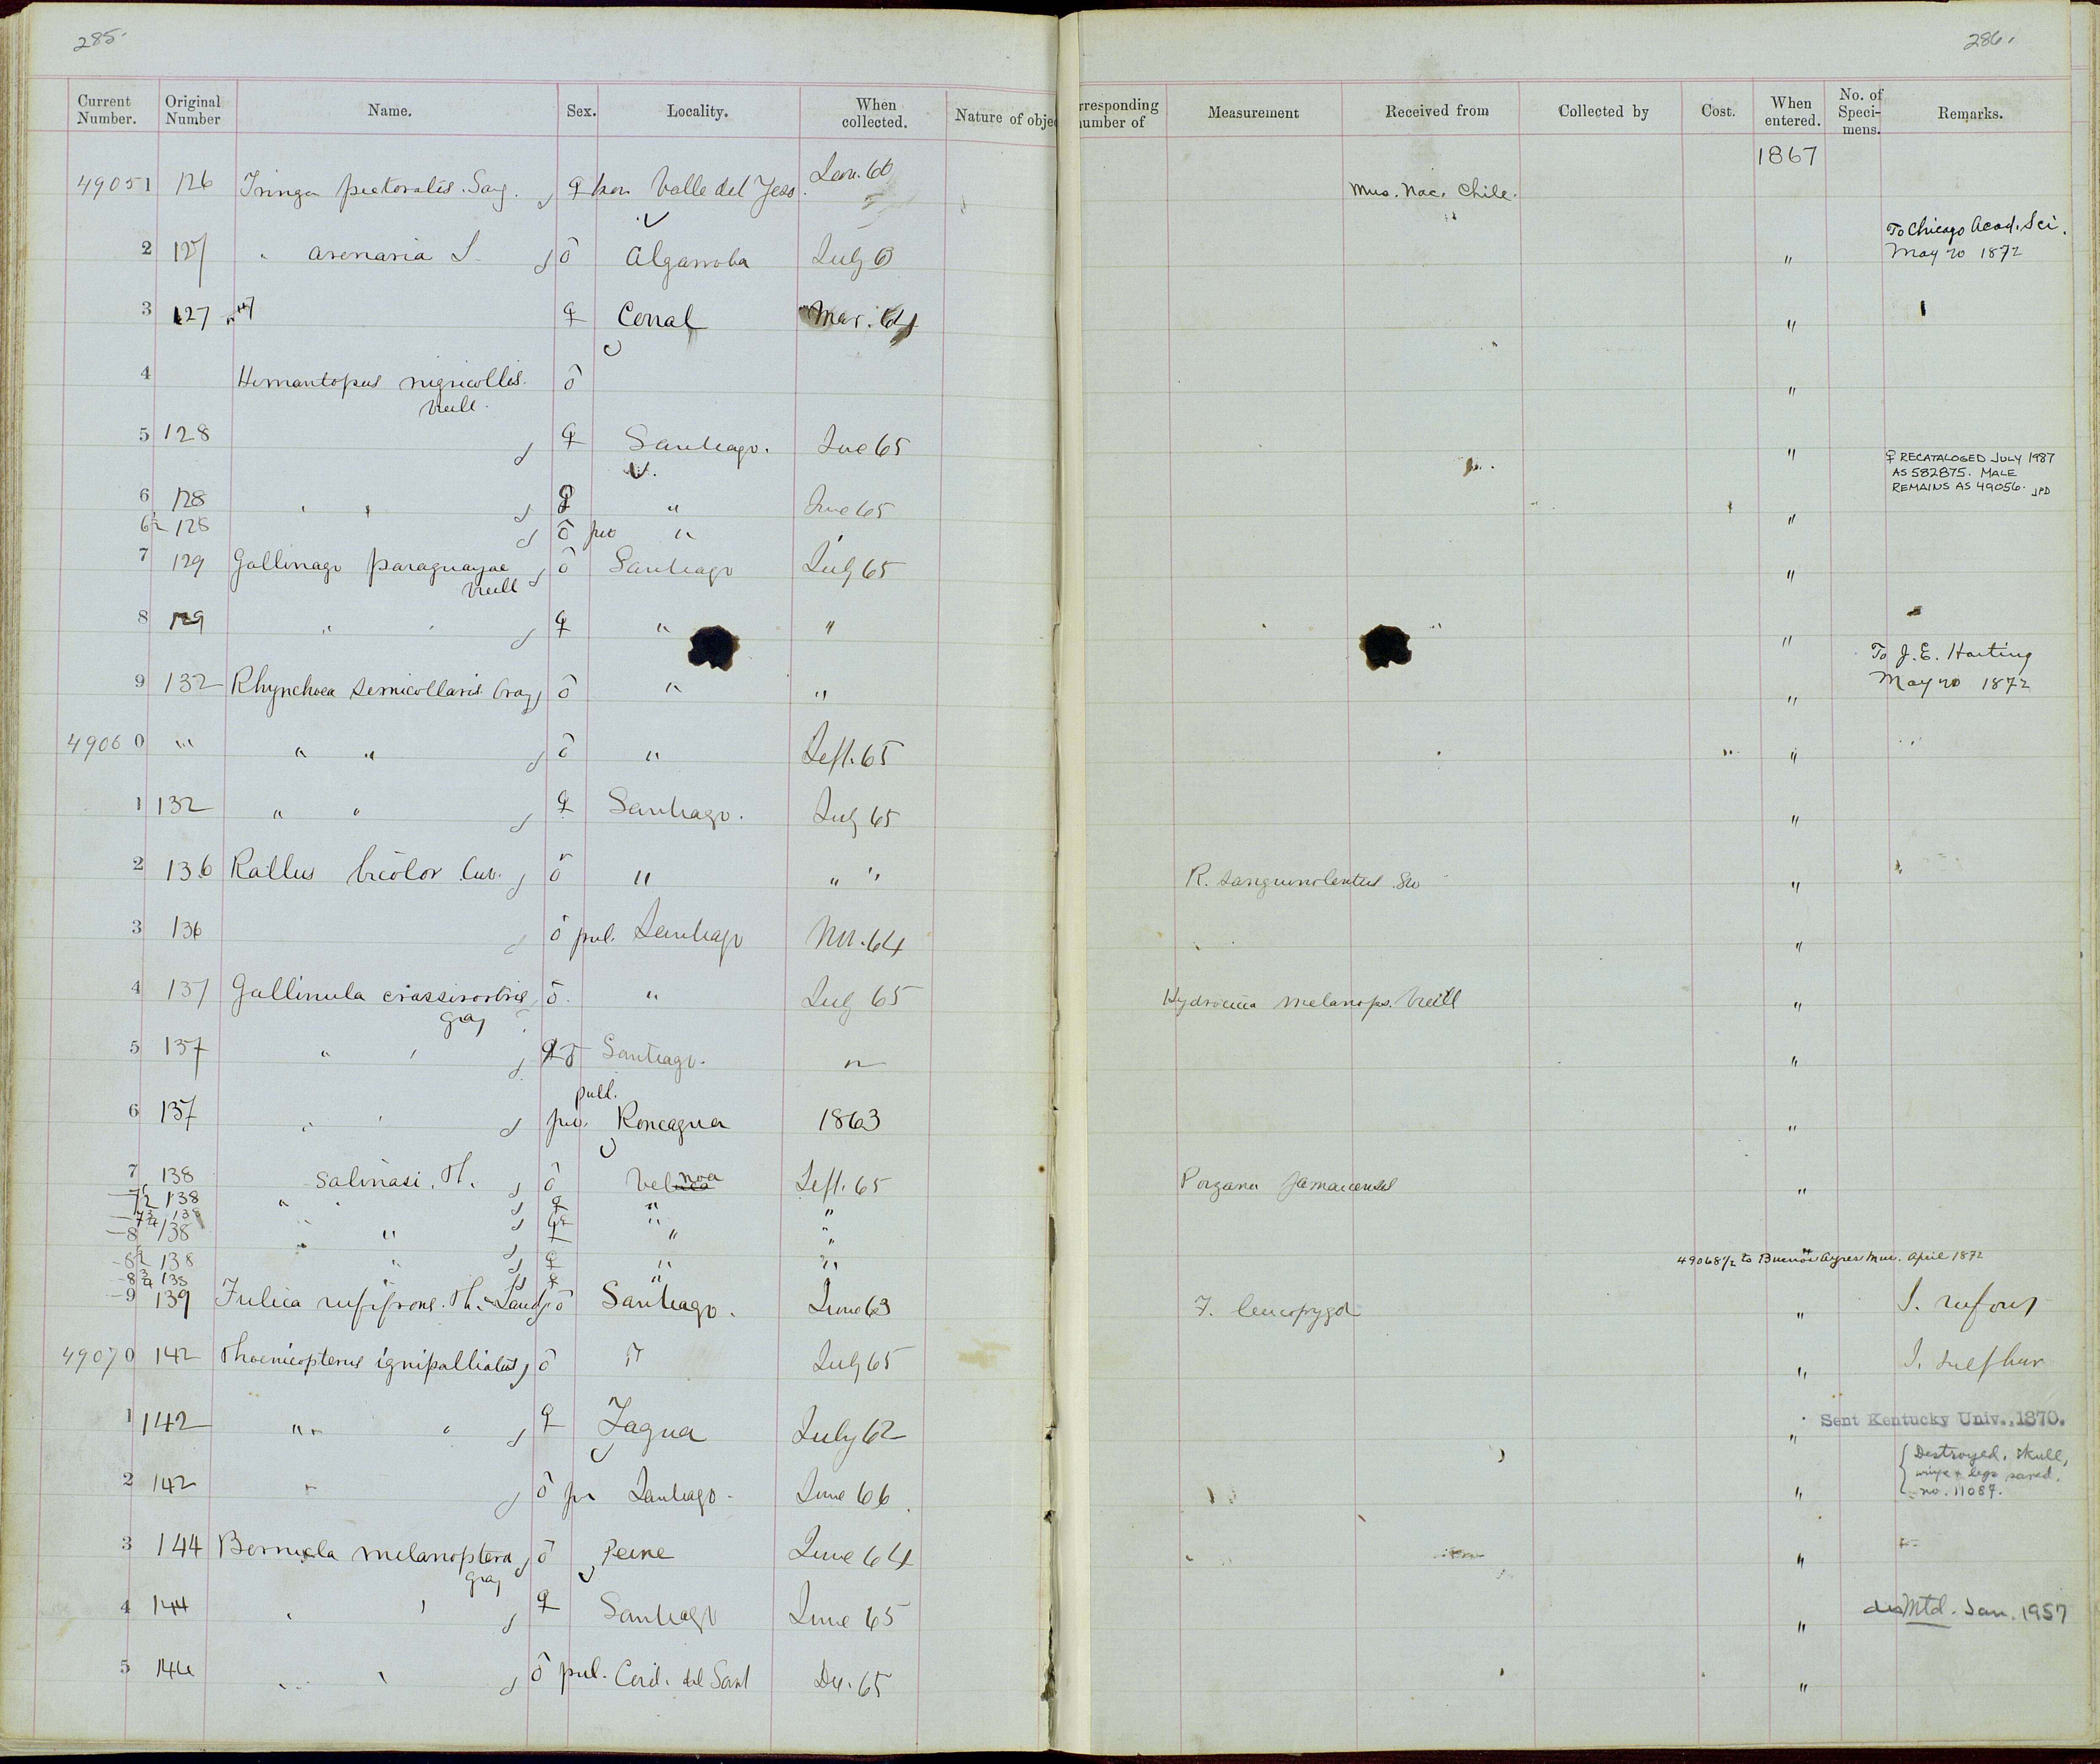 285.
286.
Current Number. Original Number Name. Sex. Locality. When collected. Nature of objec
rresponding number of Measurement Received from Collected by Cost. When entered. No. of Speci-mens. Remarks.
1867
49051 126 Tringa pectoralis. Say. ♀ Valle del Yeso. Jan. 66 Mus. Nac. Chile.
2 127 " arenaria L. ♂ Algarroba July 63 " To Chicago Acad. Sci. May 20 1872
3 127 " ♀ Corral Mar. 64 "
4 Himantopus nigricollis. Vieill. ♂ "
5 128 ♀ Santiago. 65 "
6 128 " " ♀ " June 65 " ♀ RECATALOGED JULY 1987
AS 582875. MALE
REMAINS AS 49056. JPD
6½ 128 ♂ juv "
7 129 Gallinago paraguayae Vieill ♂ Santiago July 65 "
8 129 " " ♀ " " "
9 132 Rhynchoea semicollaris Gray ♂ " " " To J. E. Harting
May 20 1872
49060 " " " ♂ " Sept. 65 "
1 132 " " ♀ Santiago. July 65 "
2 136 Rallus bicolor Cuv. ♂ " " " R. sanguinolentus Sw "
3 136 ♂ pul. Santiago Nov. 64 "
4 137 Gallinula crassirostris Gray ♂ " July 65 Hydrocicca melanops. Vieill "
5 137 " " ♀ Santiago. " "
6 137 " " pull. juv. Rancagua 1863 "
7 138 Salinasi. Ph. ♂ Sept. 65 Porzana jamaicensis "
7½ 138 " " ♀ " "
7¾ 138 " ♀ " "
8 138 " " ♀ " "
8½ 138 " ♀ " " 49068½ to Buenos Ayres Mus. April 1872
8¾ 138 ♀ "
9 139 Fulica rufifrons. Ph. & Land ♂ Santiago. June 63 F. leucopyga " I. rufous
49070 142 Phoenicopterus ignipalliatus ♂ " July 65 " I. sulphur
1 142 " " ♀ Tagua July 62 " Sent Kentucky Univ., 1870.
2 142 " ♂ juv Santiago. June 66. " Destroyed. Skull,
wings & legs saved.
no. 11087.
3 144 Bernicla melanoptera Gray ♂ Peine June 64 "
4 144 " " ♀ Santiago June 65 " disMtd. Jan. 1957
5 144 " " ♂ pul. Cord. del Sant Dec. 65 "